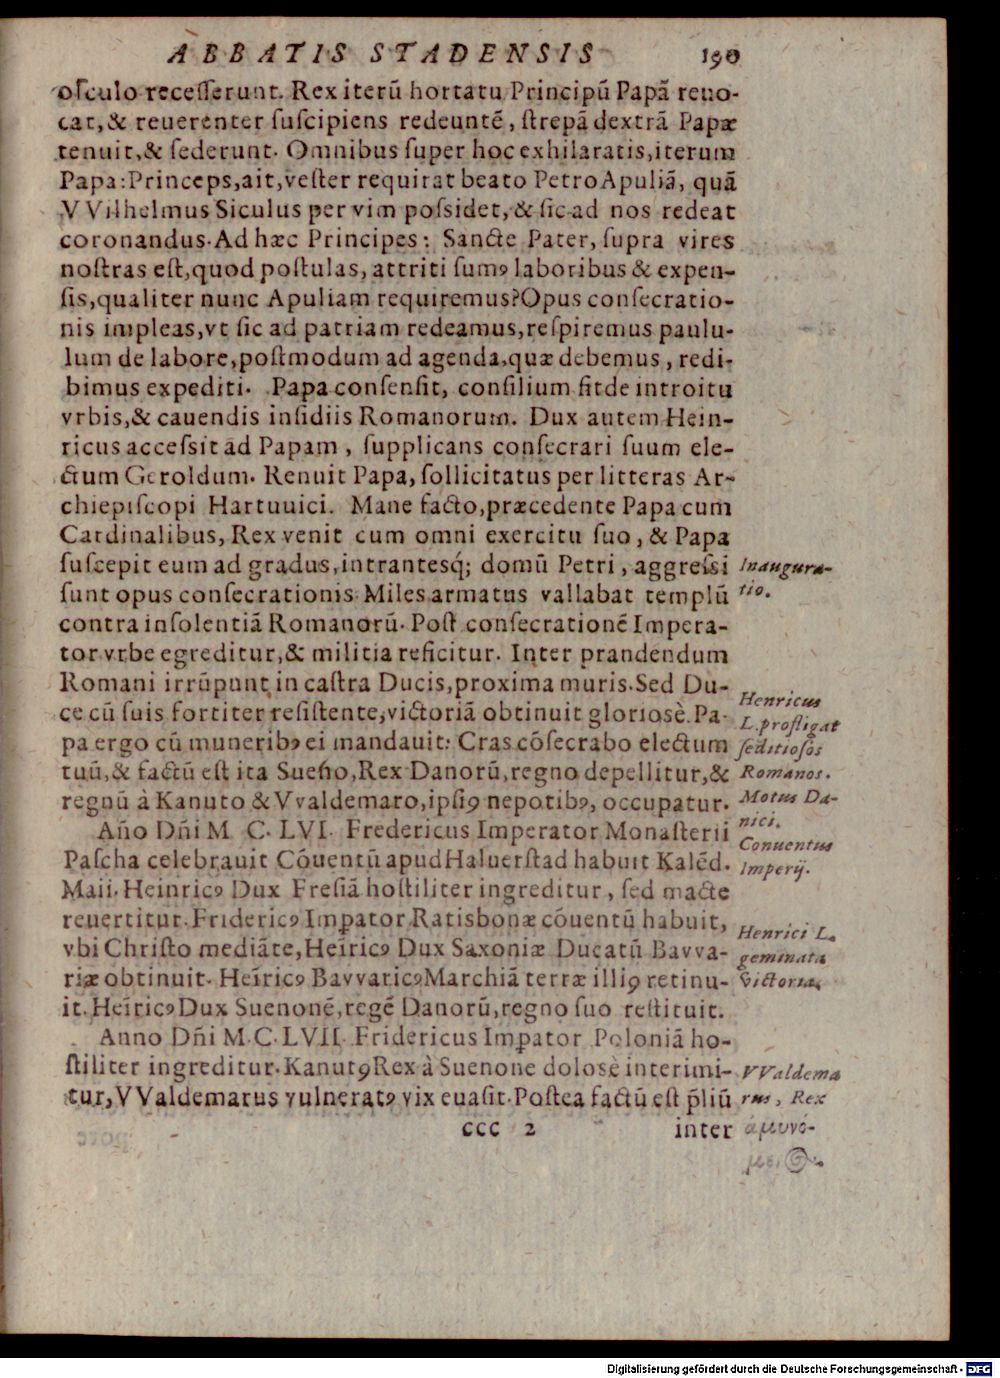 ABBATIS STADENSIS 190
oſculo receſſerunt. Rex iterũ hortatu Principũ Papã reuo-
cat, & reuerenter ſuſcipiens redeuntẽ, ſtrepã dextrã Papæ
tenuit, & ſederunt. Omnibus ſuper hoc exhilaratis, iterum
Papa: Princeps, ait, veſter requirat beato Petro Apuliã, quã
VVilhelmus Siculus per vim poſsidet, & ſic ad nos redeat
coronandus. Ad hæc Principes: Sancte Pater, ſupra vires
noſtras eſt, quod poſtulas, attriti ſumꝰ laboribus & expen-
ſis, qualiter nunc Apuliam requiremus? Opus conſecratio-
nis impleas, vt ſic ad patriam redeamus, reſpiremus paulu-
lum de labore, poſtmodum ad agenda, quæ debemus, redi-
bimus expediti. Papa conſenſit, conſilium fit de introitu
vrbis, & cauendis inſidiis Romanorum. Dux autem Hein-
ricus acceſsit ad Papam, ſupplicans conſecrari ſuum ele-
ctum Geroldum. Renuit Papa, ſollicitatus per litteras Ar-
chiepiſcopi Hartuuici. Mane facto, præcedente Papa cum
Cardinalibus, Rex venit cum omni exercitu ſuo, & Papa
ſuſcepit eum ad gradus, intrantesq́; domũ Petri, aggreſsi
ſunt opus conſecrationis. Miles armatus vallabat templũ
contra inſolentiã Romanorũ. Poſt conſecrationẽ Impera-
tor vrbe egreditur, & militia reficitur. Inter prandendum
Romani irrũpunt in caſtra Ducis, proxima muris. Sed Du-
ce cũ ſuis fortiter reſiſtente, victoriã obtinuit glorioſè. Pa-
pa ergo cũ muneribꝰ ei mandauit: Cras cõſecrabo electum
tuũ, & factũ eſt ita Sueño, Rex Danorũ, regno depellitur, &
regnũ à Kanuto & Vvaldemaro, ipſiꝰ nepotibꝰ, occupatur.
Año Dñi M. C. LVI. Fredericus Imperator Monaſterii
Paſcha celebrauit Cõuentũ apud Haluerſtad habuit Kalẽd.
Maii. Heinricꝰ Dux Freſiã hoſtiliter ingreditur, ſed macte
reuertitur. Fridericꝰ Imꝑator Ratisbonæ cõuentũ habuit,
vbi Chriſto mediãte, Heĩricꝰ Dux Saxoniæ Ducatũ Bavva-
riæ obtinuit. Heĩricꝰ Bavvaricꝰ Marchiã terræ illiꝰ retinu-
it. Heĩricꝰ Dux Suenonẽ, regẽ Danorũ, regno ſuo reſtituit.
Anno Dñi M.C.LVII. Fridericus Imꝑator Poloniã ho-
ſtiliter ingreditur. Kanutꝰ Rex à Suenone doloſè interimi-
tur, VValdemarus vulneratꝰ vix euaſit. Poſtea factũ eſt p̃liũ
CCC 2 inter
Inaugura-
tio.
Henricus
L. profligat
ſeditioſos
Romanos.
Motus Da-
nici.
Conuentus
Imperij.
Henrici L.
geminata
victoria.
VValdema
rus, Rex
ἀμυνό-
Digitalisierung gefördert durch die Deutsche Forschungsgemeinschaft - DFG